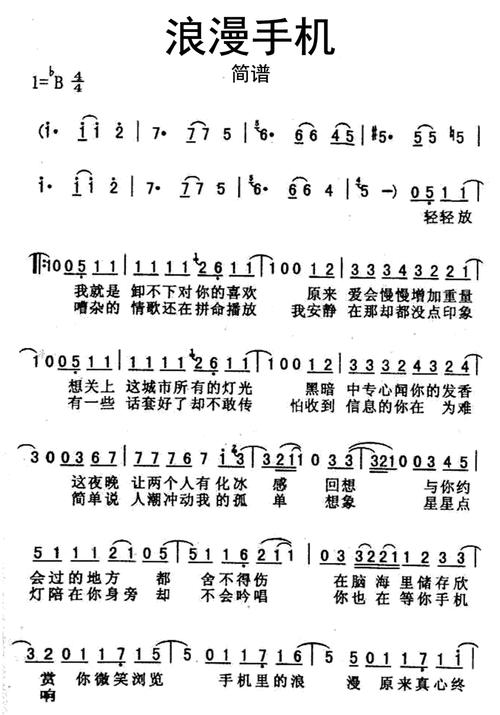 浪漫手机
简谱
1=♭B 4/4
(i· i i 2 | 7· 7 7 5 | 6· 6 6 4 5 | #5· 5 5 ♮5 |
i· i i 2 | 7· 7 7 5 | 6· 6 6 4 | 5 -) 0 5 1 1 |
轻轻放
1 0 0 5 1 1 | 1 1 1 1 2 6 1 1 | 1 0 0 1 2 | 3 3 4 3 3 2 2 1 |
我就是 卸不下对你的喜欢 原来 爱会慢慢增加重量
嘈杂的 情歌还在拼命播放 我安静 在那却都没点印象
1 0 0 5 1 1 | 1 1 1 1 2 6 1 1 | 1 0 0 1 2 | 3 3 2 3 4 3 2 4
想关上 这城市所有的灯光 黑暗 中专心闻你的发香
有一些 话套好了却不敢传 怕收到 信息的你在 为难
3 0 0 3 6 7 | 7 7 7 6 7 i 3 | 3 2 1 1 0 0 2 3 | 3 2 1 0 0 3 4 5
这夜晚 让两个人有化冰 感 回想 与你约
简单说 人潮冲动我的孤 单 想象 星星点
5 1 1 1 2 1 0 5 | 5 1 1 6 2 1 | 0 3 3 2 2 1 1 5 5 4 |
会过的地方 都 舍不得伤 在脑 海里储存欣
灯陪在你身旁 却 不会吟唱 你也 在等你手机
3 2 0 1 1 7 1 1 5 | 5 0 1 1 7 1 1 5 | 5 0 1 1 7 1 1 5
赏 你微笑浏览 手机里的浪 漫 原来真心终
响